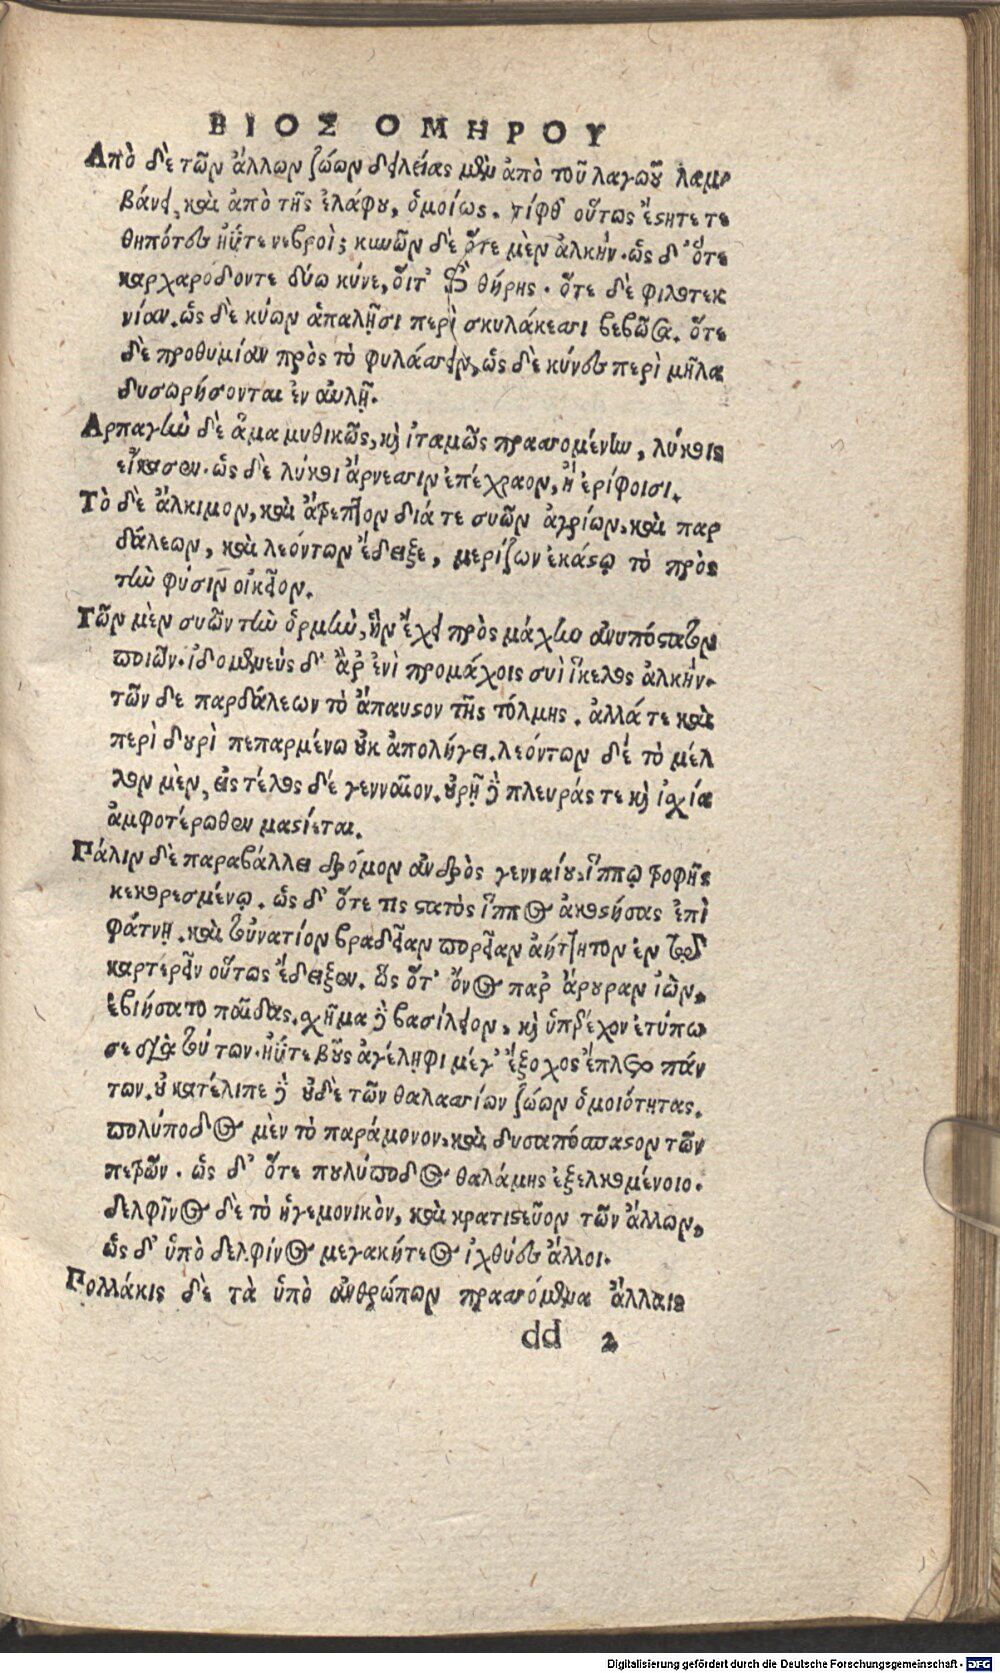 ΒΙΟΣ ΟΜΗΡΟΥ
Ἀπὸ δὲ τῶν ἄλλων ζώων δειλείας μὲν ἀπὸ τοῦ λαγωοῦ λαμ
βάνει, καὶ ἀπὸ τῆς ἐλάφου, ὁμοίως. τίφθ οὕτως ἔστητε τε
θηπότες ἠΰτε νεβροὶ; κυνῶν δὲ ὅτε μὲν ἀλκὴν. ὡς δ' ὅτε
καρχαρόδοντε δύω κύνε, εἰδότε θήρης. ὅτε δὲ φιλοτεκ
νίαν. ὡς δὲ κύων ἁπαλῇσι περὶ σκυλάκεσσι βεβῶσα. ὅτε
δὲ προθυμίαν πρὸς τὸ φυλάσσειν, ὡς δὲ κύνες περὶ μῆλα
δυσωρήσονται ἐν αὐλῇ.
Ἁρπαγὴν δὲ ἅμα μυθικῶς, καὶ ἰταμῶς πρασσομένην, λύκοις
εἴκασεν. ὡς δὲ λύκοι ἄρνεσσιν ἐπέχραον, ἢ ἐρίφοισι.
Τὸ δὲ ἄλκιμον, καὶ ἄτρεπτον διά τε συῶν ἀγρίων, καὶ παρ
δάλεων, καὶ λεόντων ἔδειξε, μερίζων ἑκάστῳ τὸ πρὸς
τὴν φύσιν οἰκεῖον.
Τῶν μὲν συῶν τὴν ὁρμὴν, ἣν ἔχει πρὸς μάχην ἀνυπόστατον
ποιῶν. ἰδομενεύς δ' ἂρ ἐνὶ προμάχοις συῒ ἴκελος ἀλκήν.
τῶν δε παρδάλεων τὸ ἄπαυστον τῆς τόλμης. ἀλλά τε καὶ
περὶ δουρὶ πεπαρμένω οὐκ ἀπολήγει. λεόντων δέ τὸ μέλ
λον μὲν, εἰς τέλος δέ γενναῖον. οὐρῇ δὲ πλευράς τε καὶ ἰσχία
ἀμφοτέρωθεν μαστίεται.
Πάλιν δὲ παραβάλλει δρόμον ἀνδρὸς γενναίου, ἵππῳ τροφῆς
κεκορεσμένῳ. ὡς δ' ὅτε τις στατὸς ἵππος ἀκοστήσας ἐπὶ
φάτνῃ. καὶ τοὐνατίον βραδεῖαν πορείαν ἀήττητον ἐν τῷ δὲ
καρτερεῖν οὕτως ἔδειξεν. ὣς ὅτ' ὄνος παρ ἄρουραν ἰὼν,
ἐβιήσατο παῖδας. σχῆμα δὲ βασίλειον, καὶ ὑπερέχον ἐτύπω
σε διὰ τούτων. ἠΰτε βοῦς ἀγέληφι μέγ' ἔξοχος ἔπλετο πάν
των. οὐ κατέλιπε δὲ οὐδὲ τῶν θαλασσίων ζώων ὁμοιότητας.
πολύποδος μὲν τὸ παράμονον, καὶ δυσαπόσπαστον τῶν
πετρῶν. ὡς δ' ὅτε πουλύποδος θαλάμης ἐξελκομένοιο.
δελφῖνος δὲ τὸ ἡγεμονικὸν, καὶ κρατιστεῦον τῶν ἄλλων,
ὡς δ' ὑπὸ δελφίνος μεγακήτεος ἰχθύες ἄλλοι.
Πολλάκις δὲ τὰ ὑπὸ ἀνθρώπων πρασσόμενα ἄλλοις
dd 2
Digitalisierung gefördert durch die Deutsche Forschungsgemeinschaft - DFG